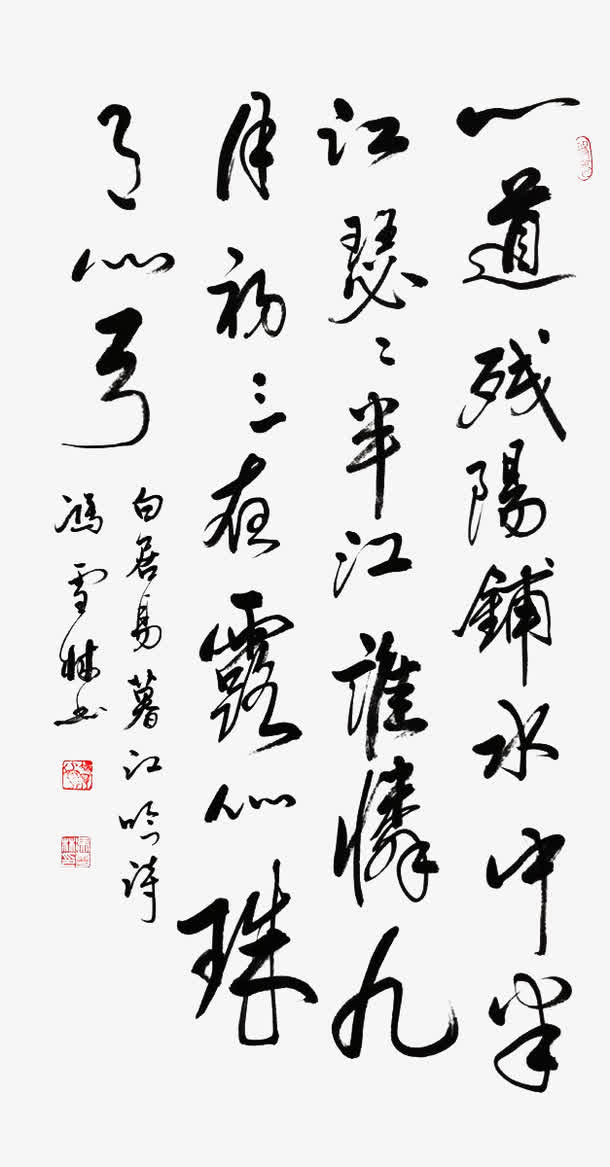 一道残陽鋪水中半
江瑟々半江誰憐九
月初三夜露似珠
月似弓
白居易暮江吟詩
馮雪林书